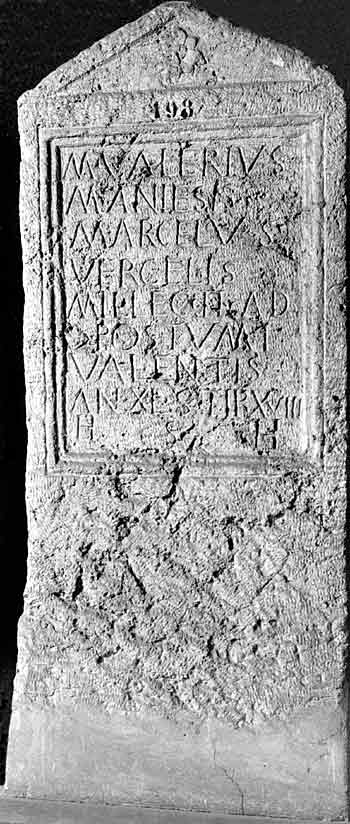 198
M VALERIVS
M ANIES
MARCELVS
VERCELIS
MIL LEG II AD
POSTVMI
VALENTIS
AN STIP XVIII
H S H